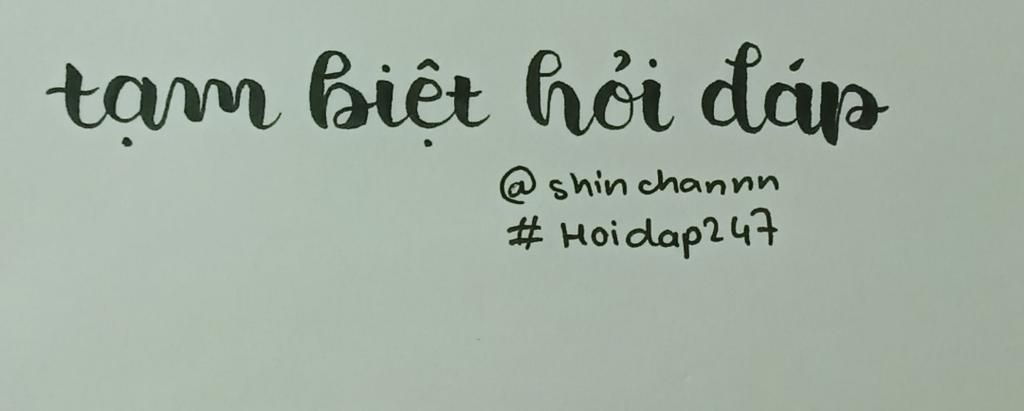 tạm biệt hỏi đáp
@shinchannn
#Hoidap247